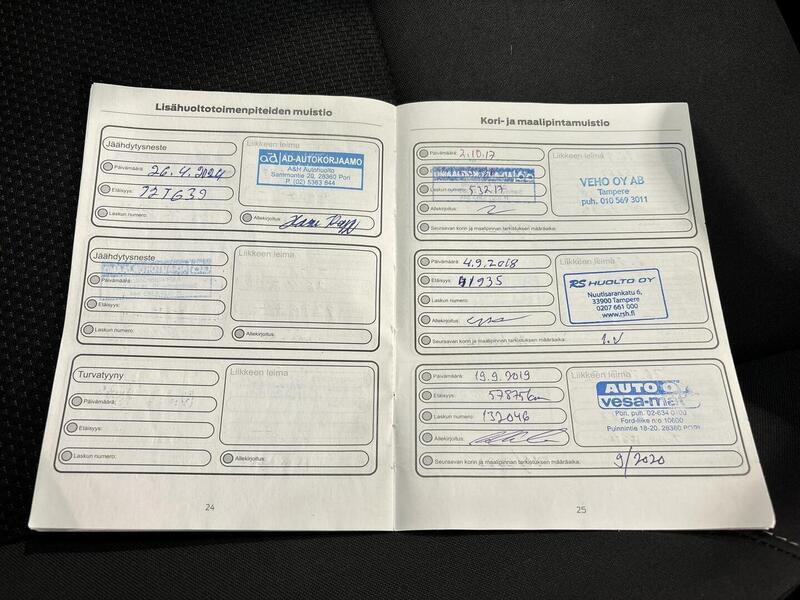 Lisähuoltotoimenpiteiden muistio
Jäähdytysneste
Päivämäärä: 26.4.2024
Etäisyys:
Laskun numero:
Liikkeen leima
ad AD-AUTOKORJAAMO
A&H Autohuolto
Sammontie 20, 28360 Pori
P. (02) 5363 844
Allekirjoitus:
Jäähdytysneste
Päivämäärä
Etäisyys:
Laskun numero:
Liikkeen leima
Allekirjoitus:
Turvatyyny
Päivämäärä:
Etäisyys:
Laskun numero:
Liikkeen leima
Allekirjoitus:
24
Kori- ja maalipintamuistio
Päivämäärä: 2.10.17
Laskun numero: 53217
Allekirjoitus:
Liikkeen leima
VEHO OY AB
Tampere
puh. 010 569 3011
Seuraavan korin ja maalipinnan tarkistuksen määräaika:
Päivämäärä: 4.9.2018
Etäisyys: 41935
Laskun numero:
Allekirjoitus:
Liikkeen leima
RS HUOLTO OY
Nuutisarankatu 6,
33900 Tampere
0207 661 000
www.rsh.fi
Seuraavan korin ja maalipinnan tarkistuksen määräaika: 1.V
Päivämäärä: 19.9.2019
Etäisyys: 57875km
Laskun numero: 132046
Allekirjoitus:
Liikkeen leima
AUTO OY
vesa-matti
Pori, puh. 02-634
Ford-liike n:o 10600
Puinnintie 18-20, 28360 PORI
Seuraavan korin ja maalipinnan tarkistuksen määräaika: 9/2020
25